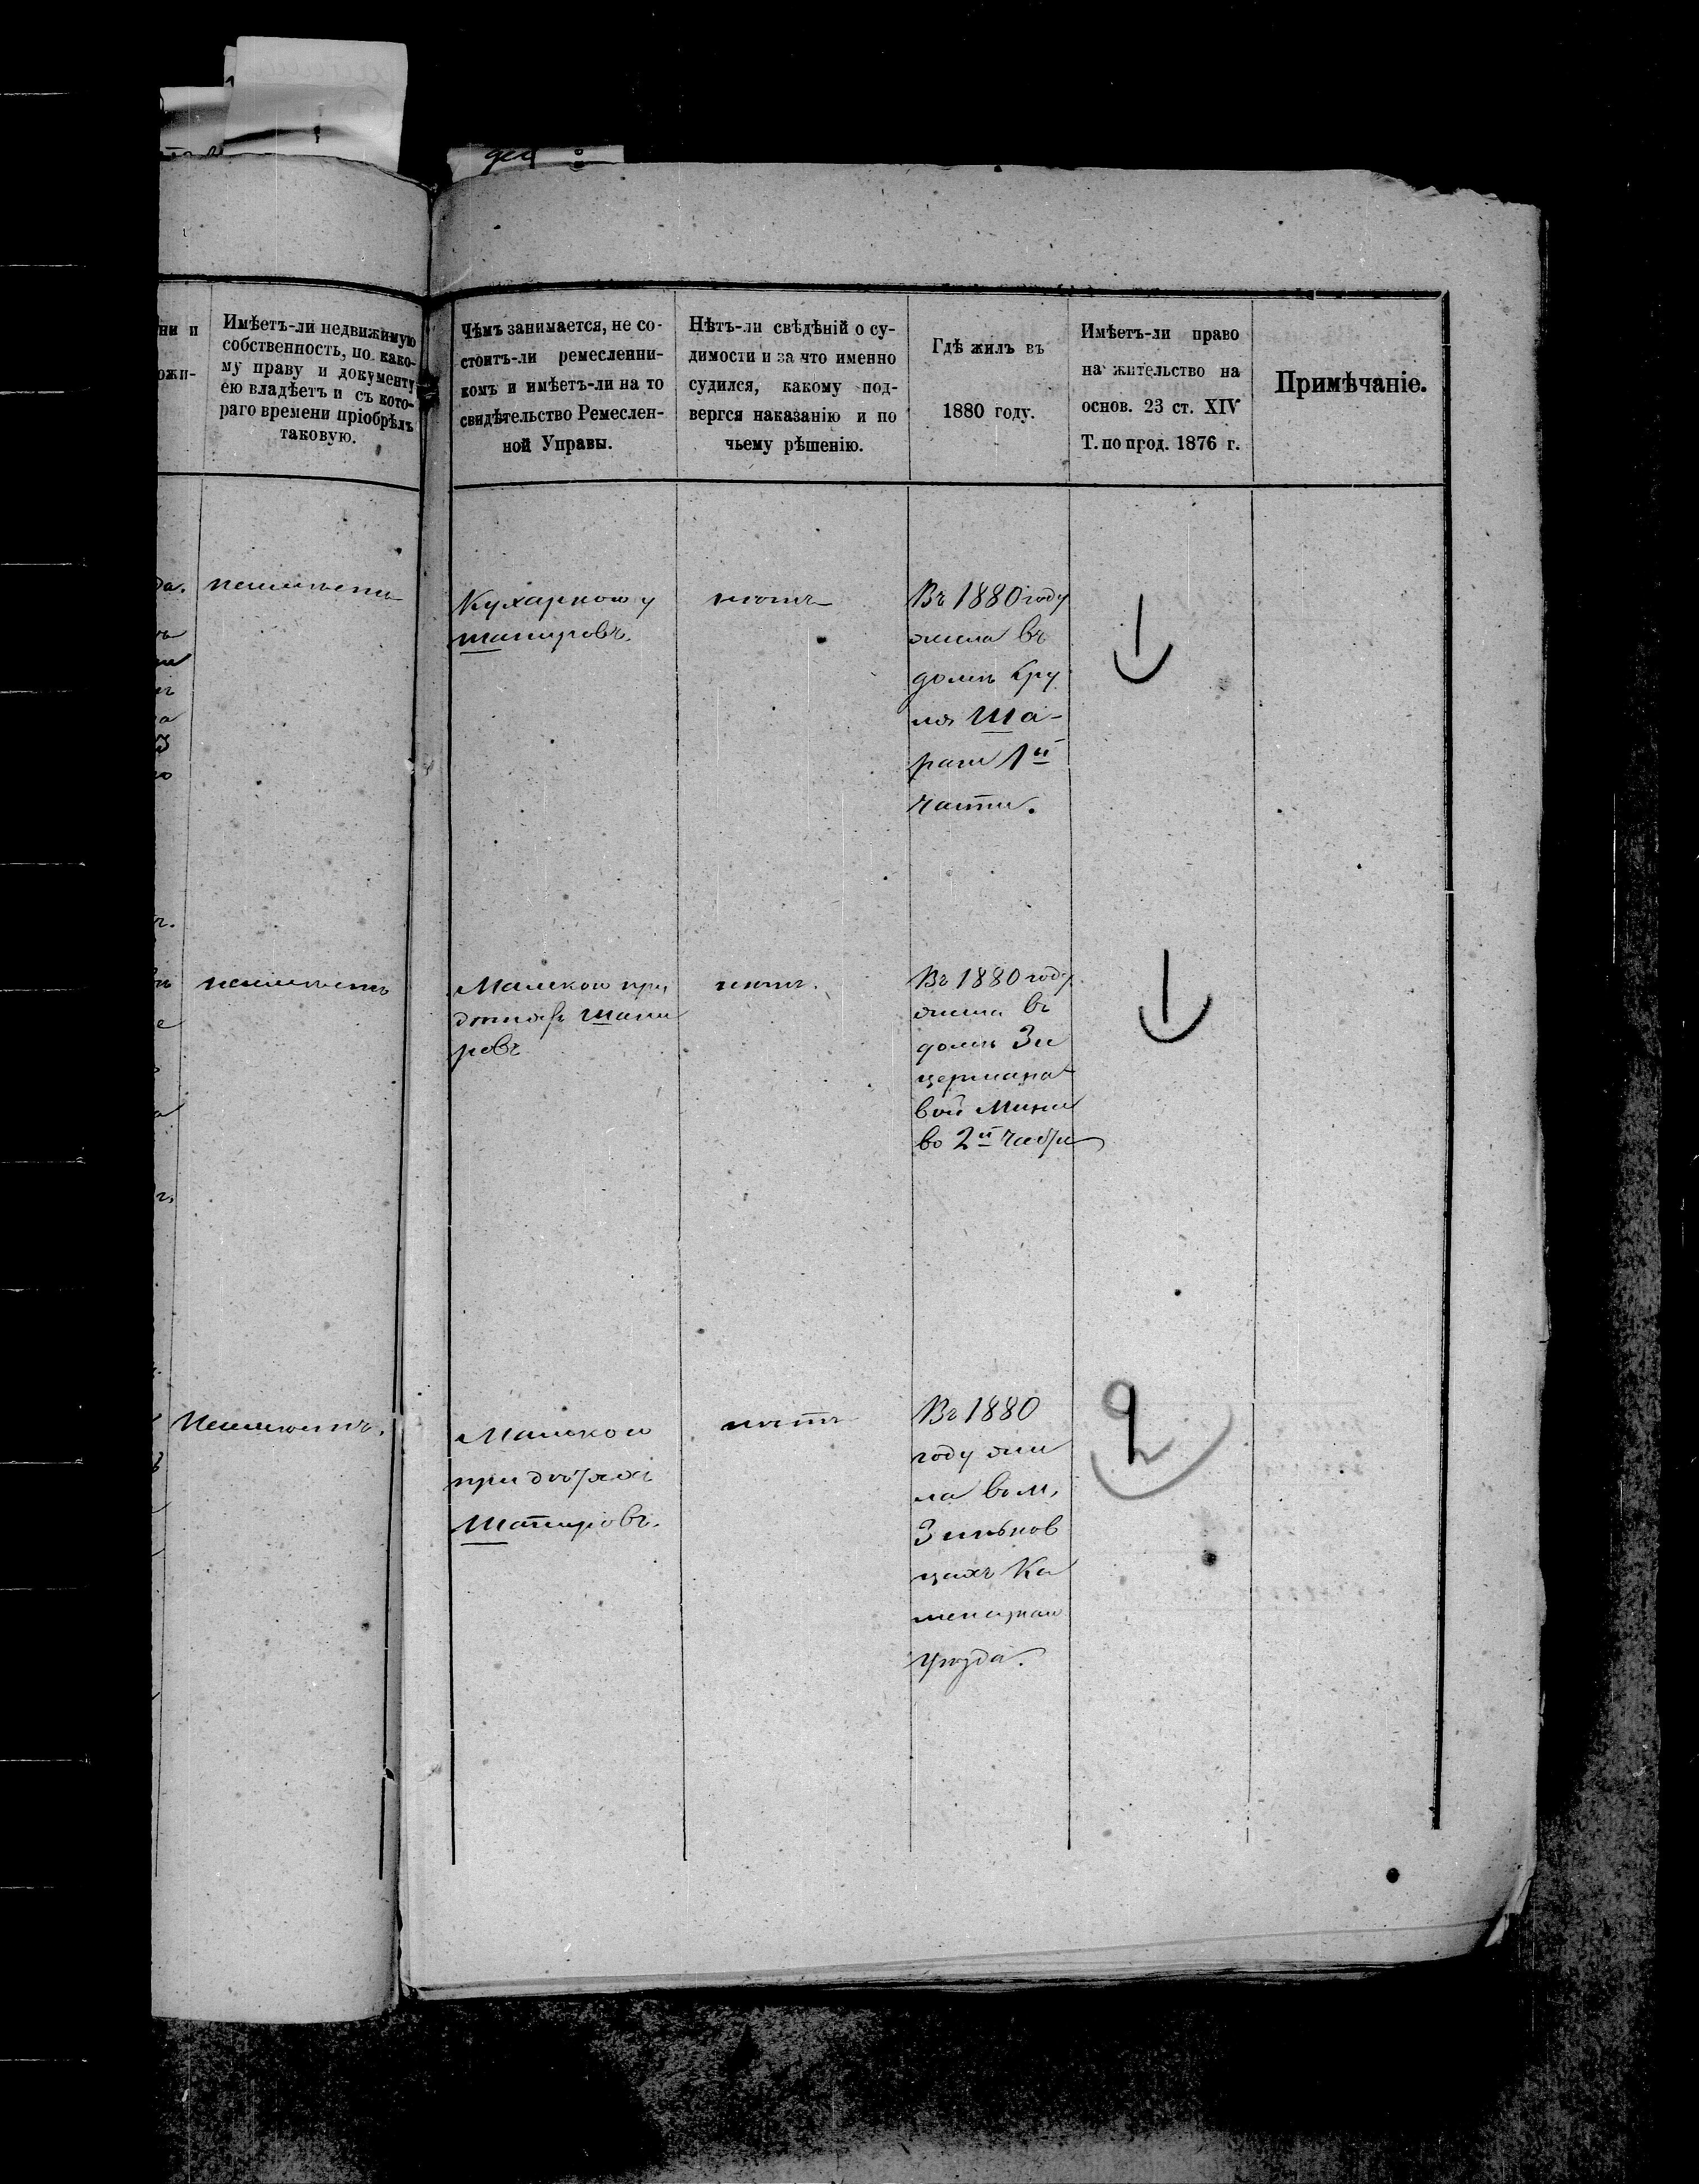 ни и
ожи-
Имѣетъ-ли недвижимую
собственность, по како-
му праву и документу
ею владѣетъ и съ кото-
раго времени пріобрѣлъ
таковую.
Чѣмъ занимается, не со-
стоитъ-ли ремесленни-
комъ и имѣетъ-ли на то
свидѣтельство Ремеслен-
ной Управы.
Нѣтъ-ли свѣдѣній о су-
димости и за что именно
судился, какому под-
вергся наказанію и по
чьему рѣшенію.
Гдѣ жилъ въ
1880 году.
Имѣетъ-ли право
на жительство на
основ. 23 ст. XIV
Т. по прод. 1876 г.
Примѣчаніе.
да.
неимѣетъ
Кухаркою у
шапировъ.
нѣтъ
Въ 1880 году
жила въ
домѣ Кру
ля Ша-
раги 1й
части.
1
неимѣетъ
Мамкою при
дѣтяхъ шапи
ровъ
нѣтъ.
Въ 1880 году
жила въ
домѣ Зи
цермано
вой Мини
во 2й части
1
Неимѣетъ.
Мамкою
при дѣтяхъ
Шапировъ.
нѣтъ
Въ 1880
году жи
ла въ м.
Зиньков
цахъ Ка
менецкаго
уѣзда.
2